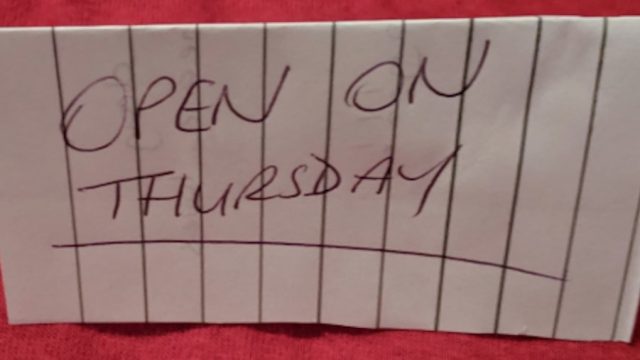 OPEN ON
THURSDAY